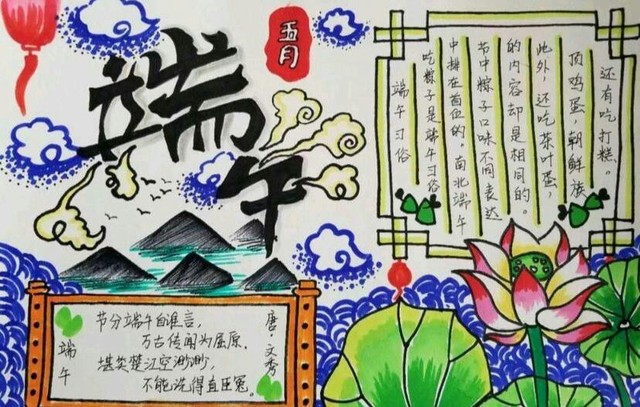 五月
端午
端午习俗
吃粽子是端午习俗
中排在首位的。南北端午
节中粽子口味不同表达
的内容却是相同的。
此外，还吃茶叶蛋，
顶鸡蛋.朝鲜族
还有吃打糕。
端午
节分端午自谁言，
万古传闻为屈原.
堪笑楚江空渺渺，
不能洗得直臣冤。
唐·文秀